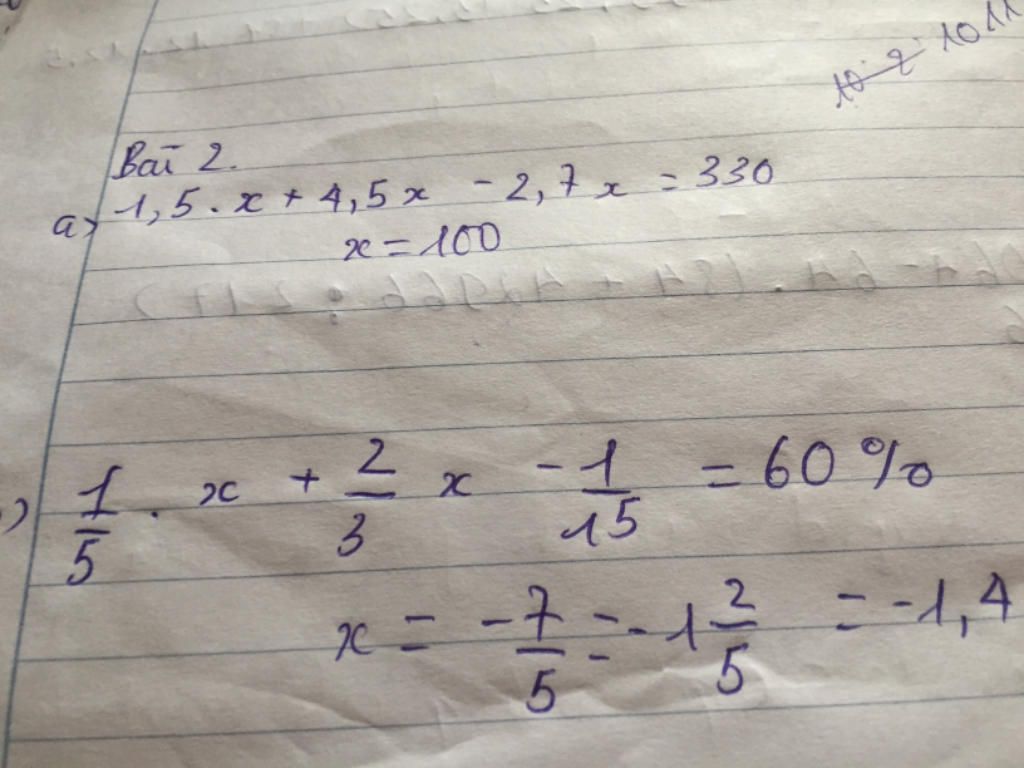 10 2 10 11
Bài 2.
a) 1,5 . x + 4,5x - 2,7x = 330
x = 100
) 1/5 . x + 2/3 x - 1/15 = 60 %
x = -7/5 = -1 2/5 = -1,4